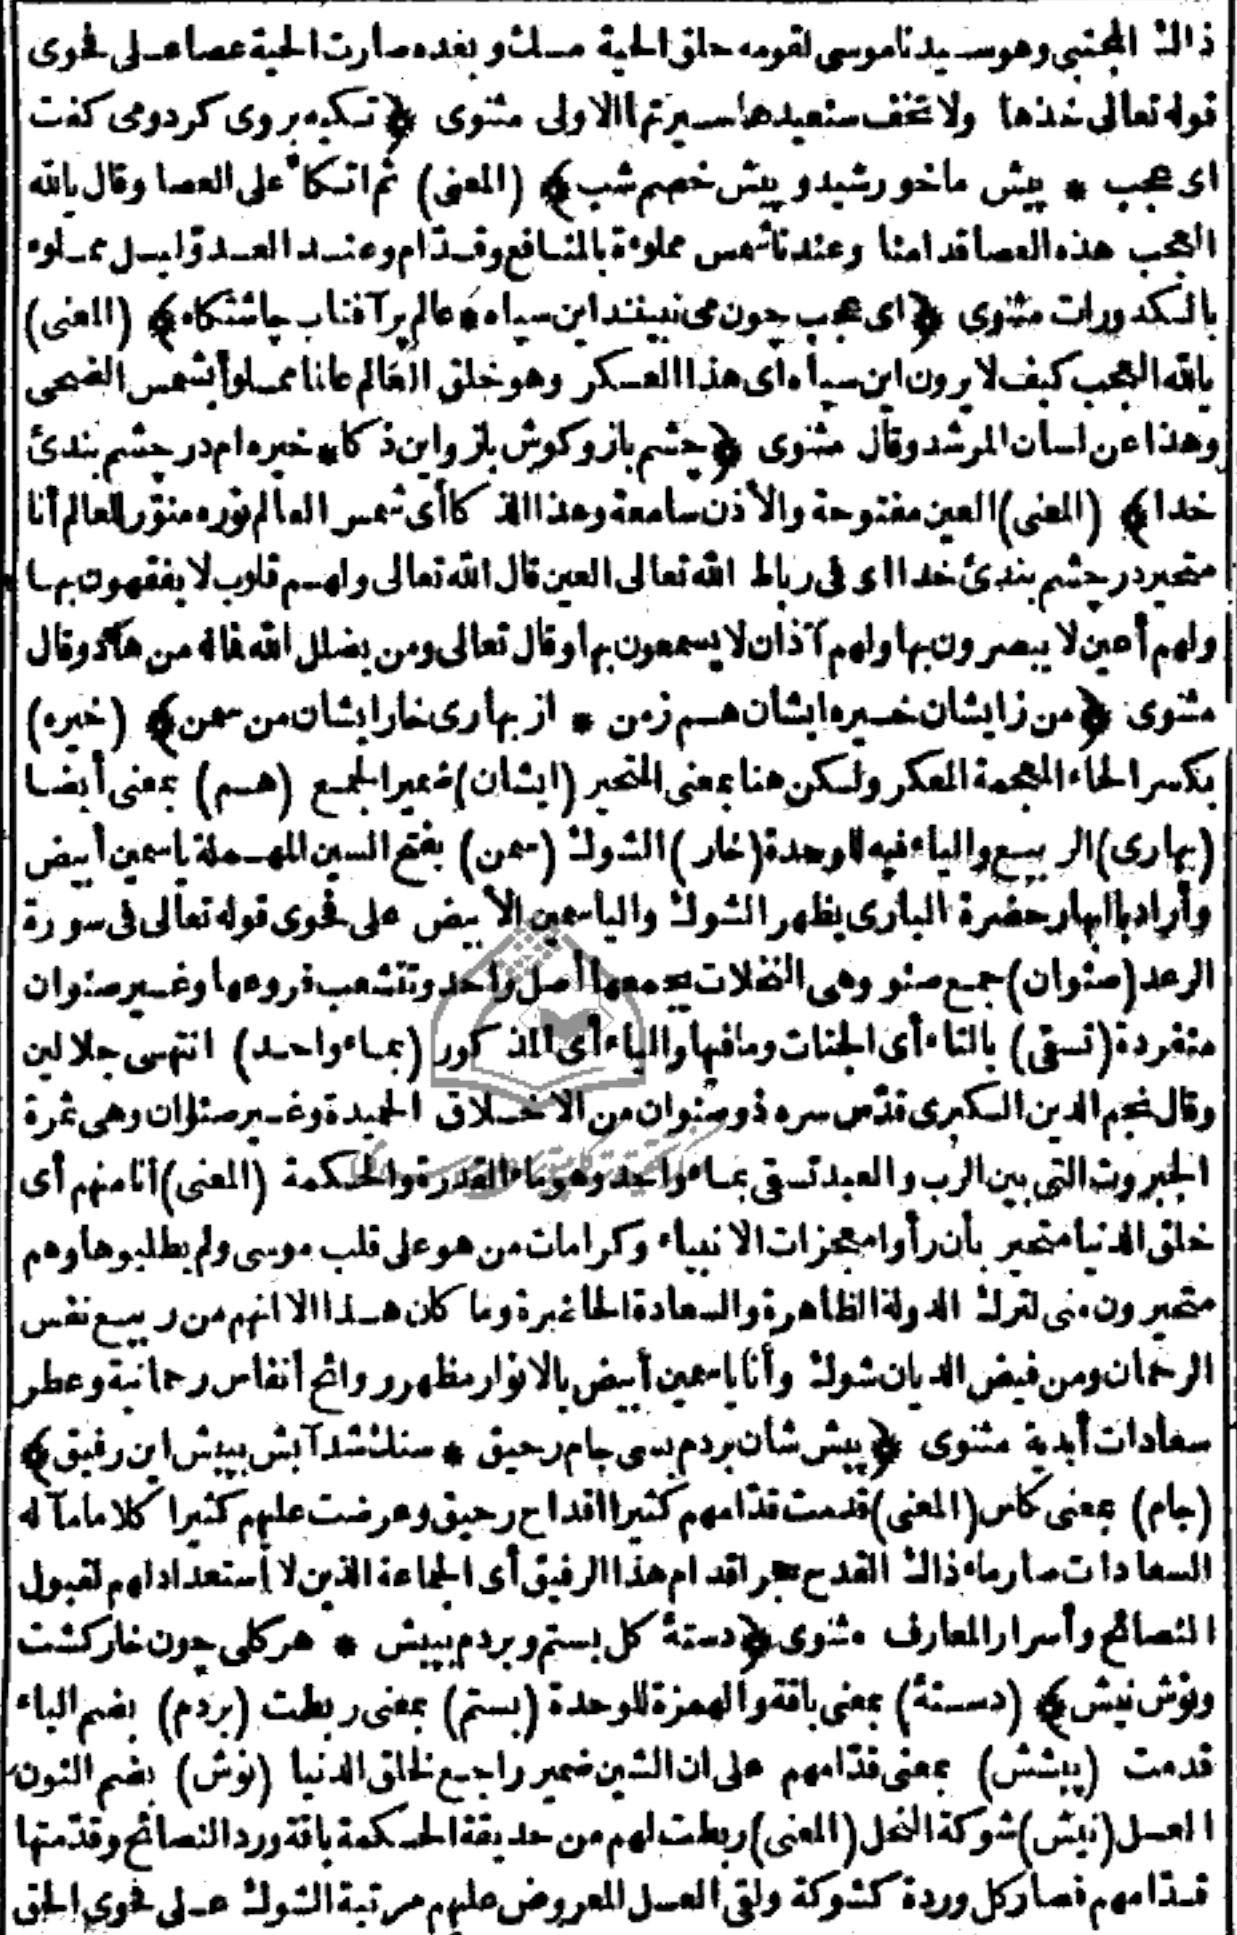 ذالك المجتبى وهو سيدنا موسى لقومه حلق الحية مسك وبعده صارت الحية عصا على فحوى
قوله تعالى خذها ولا تخف سنعيدها سيرتها الاولى مثنوى ﴿تكيه بروى كرد ومى كفت
اى عجب * پيش ماخورشيد و پيش خصم شب﴾ (المعنى) ثم اتكأ على العصا وقال يالله
العجب هذه العصا قدامنا وعندنا شمس مملوءة بالمنافع وقدّام وعند العدوّ ليل مملوء
بالكدورات مثنوى ﴿اى عجب چون مى نبينند اين سپاه * عالم پر آفتاب چاشتكاه﴾ (المعنى)
يالله العجب كيف لا يرون اين سپاه اى هذا العسكر وهو خلق العالم عالما مملوأ بشمس الضحى
وهذا عن لسان المرشد وقال مثنوى ﴿چشم باز وكوش باز واين ذكا * خيره ام در چشم بندئ
خدا﴾ (المعنى) العين مفتوحة والأذن سامعة وهذا الذكا أى شمس العالم نوره منوّر للعالم أنا
متحير در چشم بندئ خدا اى فى رباط الله تعالى العين قال الله تعالى ولهم قلوب لا يفقهون بها
ولهم أعين لا يبصرون بها ولهم آذان لا يسمعون بها وقال تعالى ومن يضلل الله فاله من هاد وقال
مثنوى ﴿من زايشان خيره ايشان هم زمن * از بهارى خار ايشان من سمن﴾ (خيره)
بكسر الخاء المعجمة العكر ولكن هنا بمعنى المتحير (ايشان) ضمير الجمع (هم) بمعنى أيضا
(بهارى) الربيع والياء فيه للوحدة (خار) الشوك (سمن) بفتح السين المهملة ياسمين أبيض
وأراد بالبهار حضرة البارى يظهر الشوك والياسمين الأبيض على فحوى قوله تعالى فى سورة
الرعد (صنوان) جمع صنو وهى النخلات يجمعها أصل واحد وتتشعب فروعها وغير صنوان
متفردة (تسقى) بالتاء أى الجنات ومافيها والياء أى المذكور (بماء واحد) انتهى جلالين
وقال نجم الدين الكبرى قدّس سره ذو صنوان من الاخلاق الحميدة وغير صنوان وهى ثمرة
الجبروت التى بين الرب والعبد تسقى بماء واحد وهو ماء القدرة والحكمة (المعنى) أنا منهم أى
خلق الدنيا متحير بأن رأوا معجزات الانبياء وكرامات من هو على قلب موسى ولم يطلبوها وهم
متحيرون منى لترك الدولة الظاهرة والسعادة الحاضرة وما كان هذا الا انهم من ربيع نفس
الرحمان ومن فيض الديان شوك وأنا ياسمين أبيض بالانوار مظهر روائح أنفاس رحمانية وعطر
سعادات أبدية مثنوى ﴿پيش شان بردم بسى جام رحيق * سنك شد آبش بپيش اين رفيق﴾
(جام) بمعنى كاس (المعنى) قدمت قدّامهم كثيرا اقداح رحيق وعرضت عليهم كثيرا كلاما مآله
السعادات صار ماء ذاك القدح حجرا قدام هذا الرفيق أى الجماعة الذين لا استعداد لهم لقبول
النصائح وأسرار المعارف مثنوى ﴿دستهٔ كل بستم وبردم بپيش * هر كلى چون خار كشت
ونوش نيش﴾ (دستهٔ) بمعنى باقة والهمزة للوحدة (بستم) بمعنى ربطت (بردم) بضم الباء
قدمت (پيشش) بمعنى قدّامهم على ان الشين ضمير راجع لخلق الدنيا (نوش) بضم النون
العسل (نيش) شوكة النحل (المعنى) ربطت لهم من حديقة الحكمة باقة ورد النصائح وقدّمتها
قدّامهم فصار كل وردة كشوكة ولقى العسل المعروض عليهم مرتبة الشوك على فحوى الحق